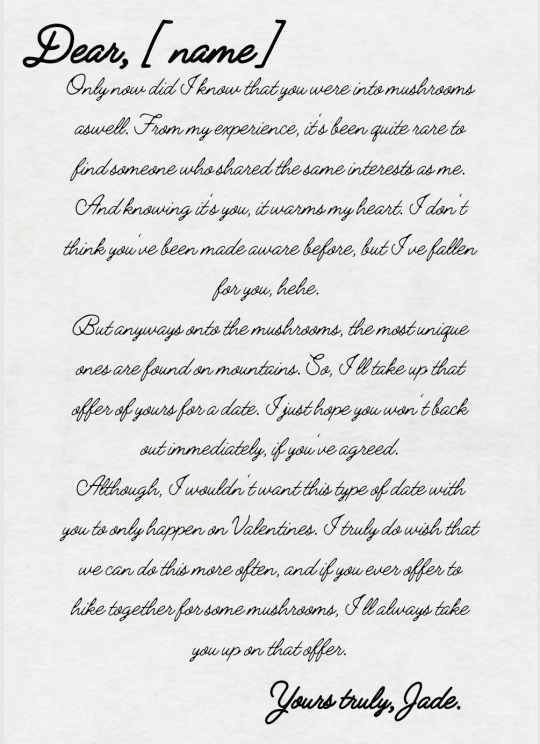 Dear, [ name]
Only now did I know that you were into mushrooms
aswell. From my experience, it's been quite rare to
find someone who shared the same interests as me.
And knowing it's you, it warms my heart. I don't
think you've been made aware before, but I've fallen
for you, hehe.
But anyways onto the mushrooms, the most unique
ones are found on mountains. So, I'll take up that
offer of yours for a date. I just hope you won't back
out immediately, if you've agreed.
Although, I wouldn't want this type of date with
you to only happen on Valentines. I truly do wish that
we can do this more often, and if you ever offer to
hike together for some mushrooms, I'll always take
you up on that offer.
Yours truly, Jade.